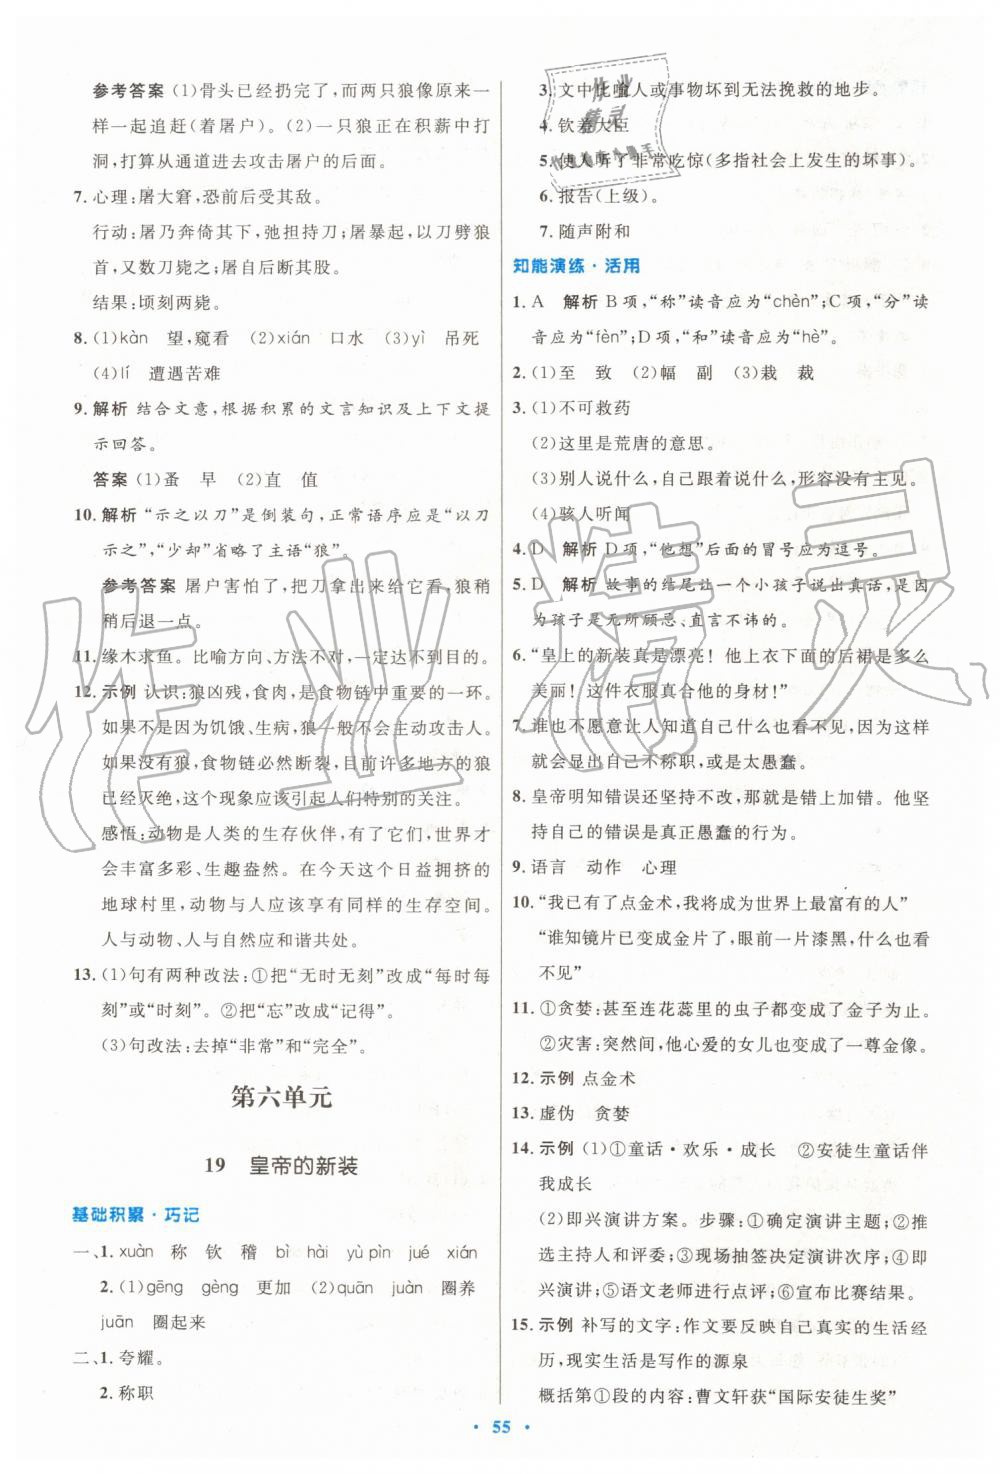 参考答案 (1)骨头已经扔完了,而两只狼像原来一
样一起追赶(着屠户)。(2)一只狼正在积薪中打
洞,打算从通道进去攻击屠户的后面。
7. 心理:屠大窘,恐前后受其敌。
行动:屠乃奔倚其下,弛担持刀;屠暴起,以刀劈狼
首,又数刀毙之;屠自后断其股。
结果:顷刻两毙。
8. (1)kàn 望,窥看 (2)xián 口水 (3)yì 吊死
(4)lí 遭遇苦难
9. 解析 结合文意,根据积累的文言知识及上下文提
示回答。
答案 (1)蚤 早 (2)直 值
10. 解析 “示之以刀”是倒装句,正常语序应是“以刀
示之”,“少却”省略了主语“狼”。
参考答案 屠户害怕了,把刀拿出来给它看,狼稍
稍后退一点。
11. 缘木求鱼。比喻方向、方法不对,一定达不到目的。
12. 示例 认识:狼凶残,食肉,是食物链中重要的一环。
如果不是因为饥饿、生病,狼一般不会主动攻击人。
如果没有狼,食物链必然断裂,目前许多地方的狼
已经灭绝,这个现象应该引起人们特别的关注。
感悟:动物是人类的生存伙伴,有了它们,世界才
会丰富多彩、生趣盎然。在今天这个日益拥挤的
地球村里,动物与人应该享有同样的生存空间。
人与动物、人与自然应和谐共处。
13. (1)句有两种改法:①把“无时无刻”改成“每时每
刻”或“时刻”。②把“忘”改成“记得”。
(3)句改法:去掉“非常”和“完全”。
第六单元
19 皇帝的新装
基础积累·巧记
一、1. xuàn 称 钦 稽 bì hài yù pìn jué xián
2. (1)gēng gèng 更加 (2)quān juàn 圈养
juān 圈起来
二、1. 夸耀。
2. 称职
3. 文中比喻人或事物坏到无法挽救的地步。
4. 钦差大臣
5. 使人听了非常吃惊(多指社会上发生的坏事)。
6. 报告(上级)。
7. 随声附和
知能演练·活用
1. A 解析 B项,“称”读音应为“chèn”;C项,“分”读
音应为“fèn”;D项,“和”读音应为“hè”。
2. (1)至 致 (2)幅 副 (3)栽 裁
3. (1)不可救药
(2)这里是荒唐的意思。
(3)别人说什么,自己跟着说什么,形容没有主见。
(4)骇人听闻
4. D 解析 D项,“他想”后面的冒号应为逗号。
5. D 解析 故事的结尾让一个小孩子说出真话,是因
为孩子是无所顾忌、直言不讳的。
6. “皇上的新装真是漂亮!他上衣下面的后裙是多么
美丽!这件衣服真合他的身材!”
7. 谁也不愿意让人知道自己什么也看不见,因为这样
就会显出自己不称职,或是太愚蠢。
8. 皇帝明知错误还坚持不改,那就是错上加错。他坚
持自己的错误是真正愚蠢的行为。
9. 语言 动作 心理
10. “我已有了点金术,我将成为世界上最富有的人”
“谁知镜片已变成金片了,眼前一片漆黑,什么也看
不见”
11. ①贪婪:甚至连花蕊里的虫子都变成了金子为止。
②灾害:突然间,他心爱的女儿也变成了一尊金像。
12. 示例 点金术
13. 虚伪 贪婪
14. 示例 (1)①童话·欢乐·成长 ②安徒生童话伴
我成长
(2)即兴演讲方案。步骤:①确定演讲主题;②推
选主持人和评委;③现场抽签决定演讲次序;④即
兴演讲;⑤语文老师进行点评;⑥宣布比赛结果。
15. 示例 补写的文字:作文要反映自己真实的生活经
历,现实生活是写作的源泉
概括第①段的内容:曹文轩获“国际安徒生奖”
· 55 ·
作业精灵
作业
精灵